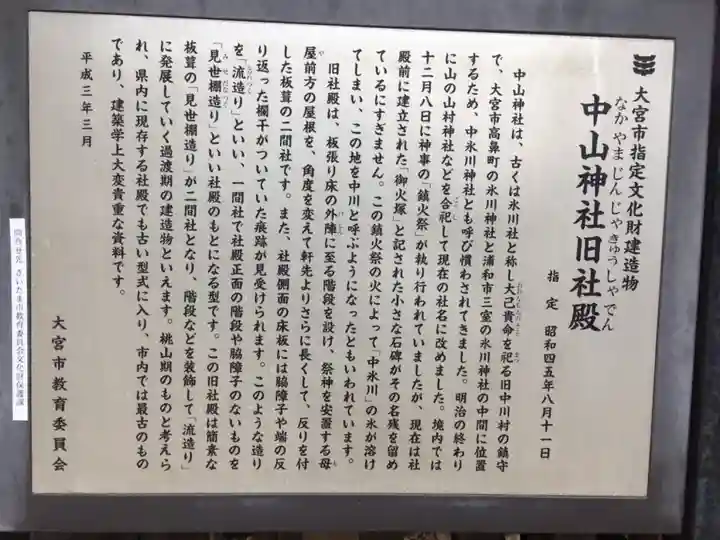 大宮市指定文化財建造物
中山神社旧社殿
なかやまじんじゃきゅうしゃでん
指定 昭和四五年八月十一日
中山神社は、古くは氷川社と称し大己貴命を祀る旧中川村の鎮守
で、大宮市高鼻町の氷川神社と浦和市三室の氷川神社の中間に位置
するため、中氷川神社とも呼び慣わされてきました。明治の終わり
に山の山村神社などを合祀して現在の社名に改めました。境内では
十二月八日に神事の「鎮火祭」が執り行われていましたが、現在は社
殿前に建立された「御火塚」と記された小さな石碑がその名残を留め
ているにすぎません。この鎮火祭の火によって「中氷川」の氷が溶け
てしまい、この地を中川と呼ぶようになったともいわれています。
旧社殿は、板張り床の外陣に至る階段を設け、祭神を安置する母
屋前方の屋根を、角度を変えて軒先よりさらに長くして、反りを付
した板葺の二間社です。また、社殿側面の床板には脇障子や端の反
り返った欄干がついていた痕跡が見受けられます。このような造り
を「流造り」といい、一間社で社殿正面の階段や脇障子のないものを
「見世棚造り」といい社殿のもとになる型です。この旧社殿は簡素な
板葺の「見世棚造り」が二間社となり、階段などを装飾して「流造り」
に発展していく過渡期の建造物といえます。桃山期のものと考えら
れ、県内に現存する社殿でも古い型式に入り、市内では最古のもの
であり、建築学上大変貴重な資料です。
平成三年三月
大宮市教育委員会
問合せ先 さいたま市教育委員会文化財保護課